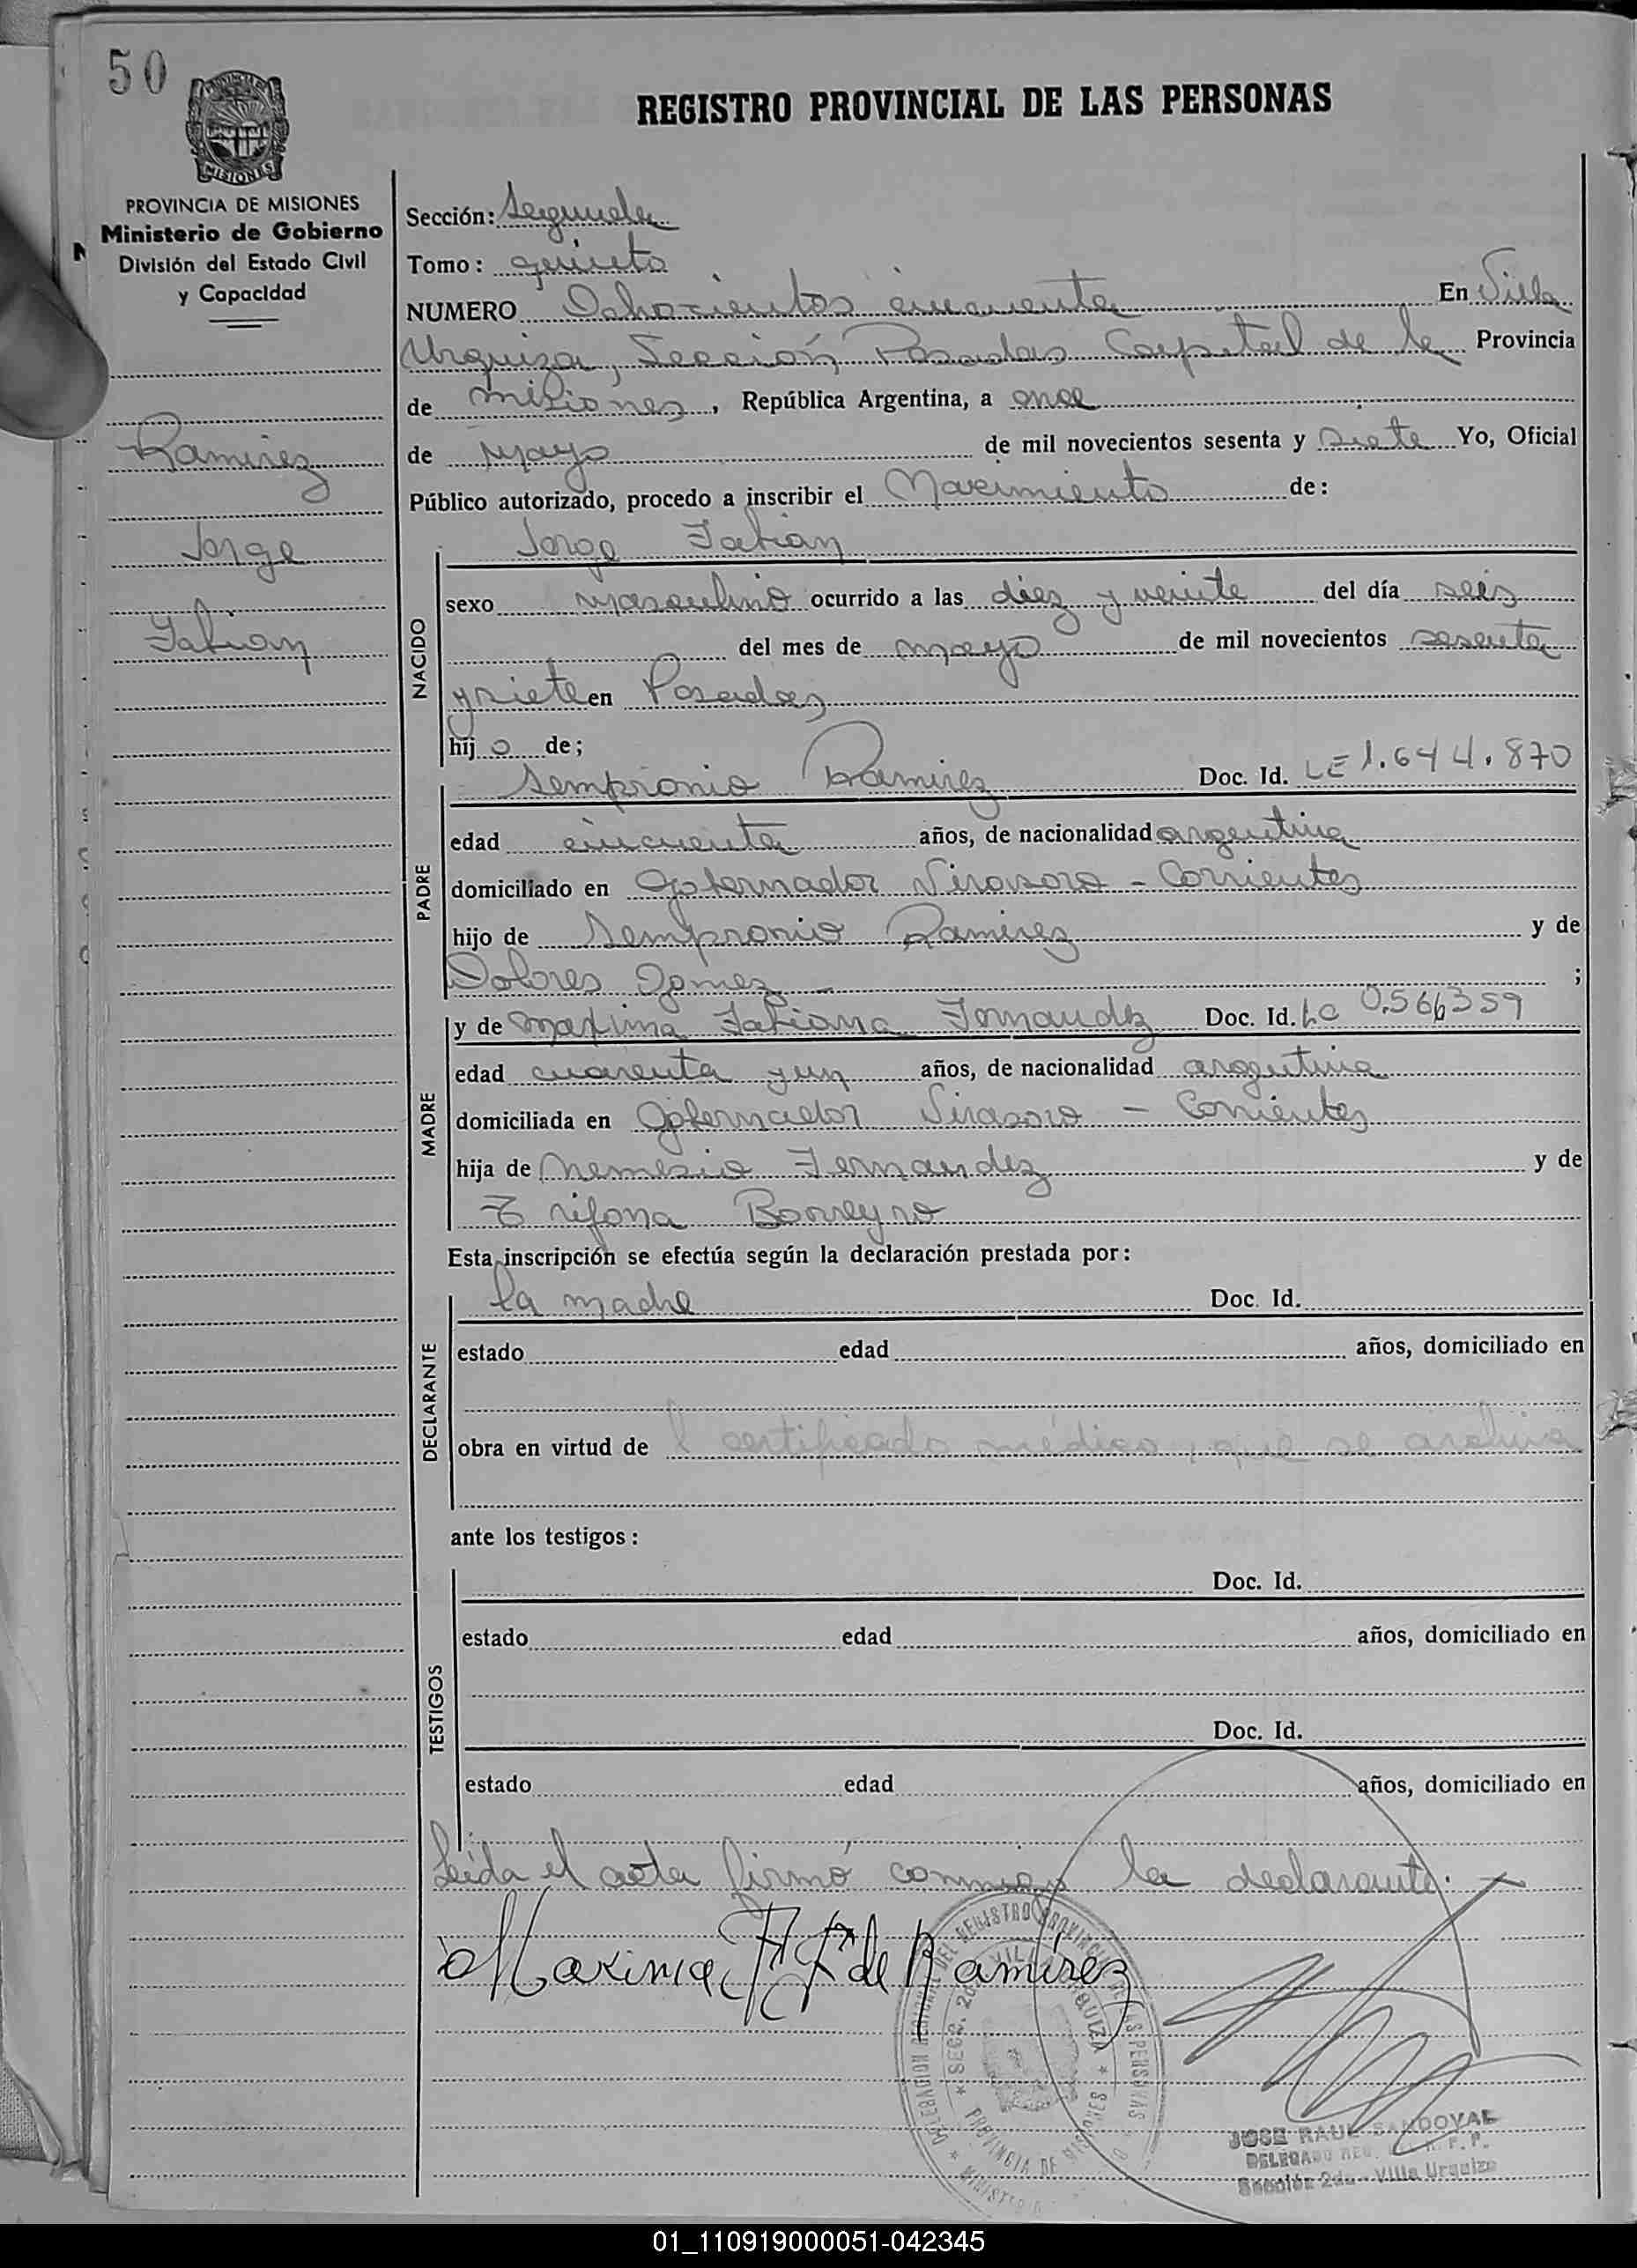 50
REGISTRO PROVINCIAL DE LAS PERSONAS
MISIONES
PROVINCIA DE MISIONES
Ministerio de Gobierno
División del Estado Civil
y Capacidad
Ramirez
Jorge
Fabian
Sección: Segunda
Tomo: quinto
NUMERO Ochocientos cincuenta En Villa
Urquiza, Sección Posadas Capital de la Provincia
de Misiones, República Argentina, a once
de Mayo de mil novecientos sesenta y siete Yo, Oficial
Público autorizado, procedo a inscribir el Nacimiento de:
NACIDO
Jorge Fabian
sexo masculino ocurrido a las diez y veinte del día seis
del mes de mayo de mil novecientos sesenta
y siete en Posadas
hijo de;
PADRE
Sempronio Ramirez Doc. Id. LE 1.644.870
edad cincuenta años, de nacionalidad argentina
domiciliado en Gobernador Virasoro - Corrientes
hijo de Sempronio Ramirez y de
Dolores Gomez - ;
MADRE
y de Maxima Fabiana Fernandez Doc. Id. LC 0.566359
edad cuarenta y un años, de nacionalidad argentina
domiciliada en Gobernador Virasoro - Corrientes
hija de Nemesio Fernandez y de
Trifona Borreyro
Esta inscripción se efectúa según la declaración prestada por:
DECLARANTE
la madre Doc. Id.
estado edad años, domiciliado en
obra en virtud de l certificado médico, que se archiva
ante los testigos:
TESTIGOS
Doc. Id.
estado edad años, domiciliado en
Doc. Id.
estado edad años, domiciliado en
Leída el acta firmó conmigo la declarante.
Maxima F F de Ramirez
JOSE RAUL SANDOVAL
DELEGADO
Sección 2da - Villa Urquiza
01_110919000051-042345